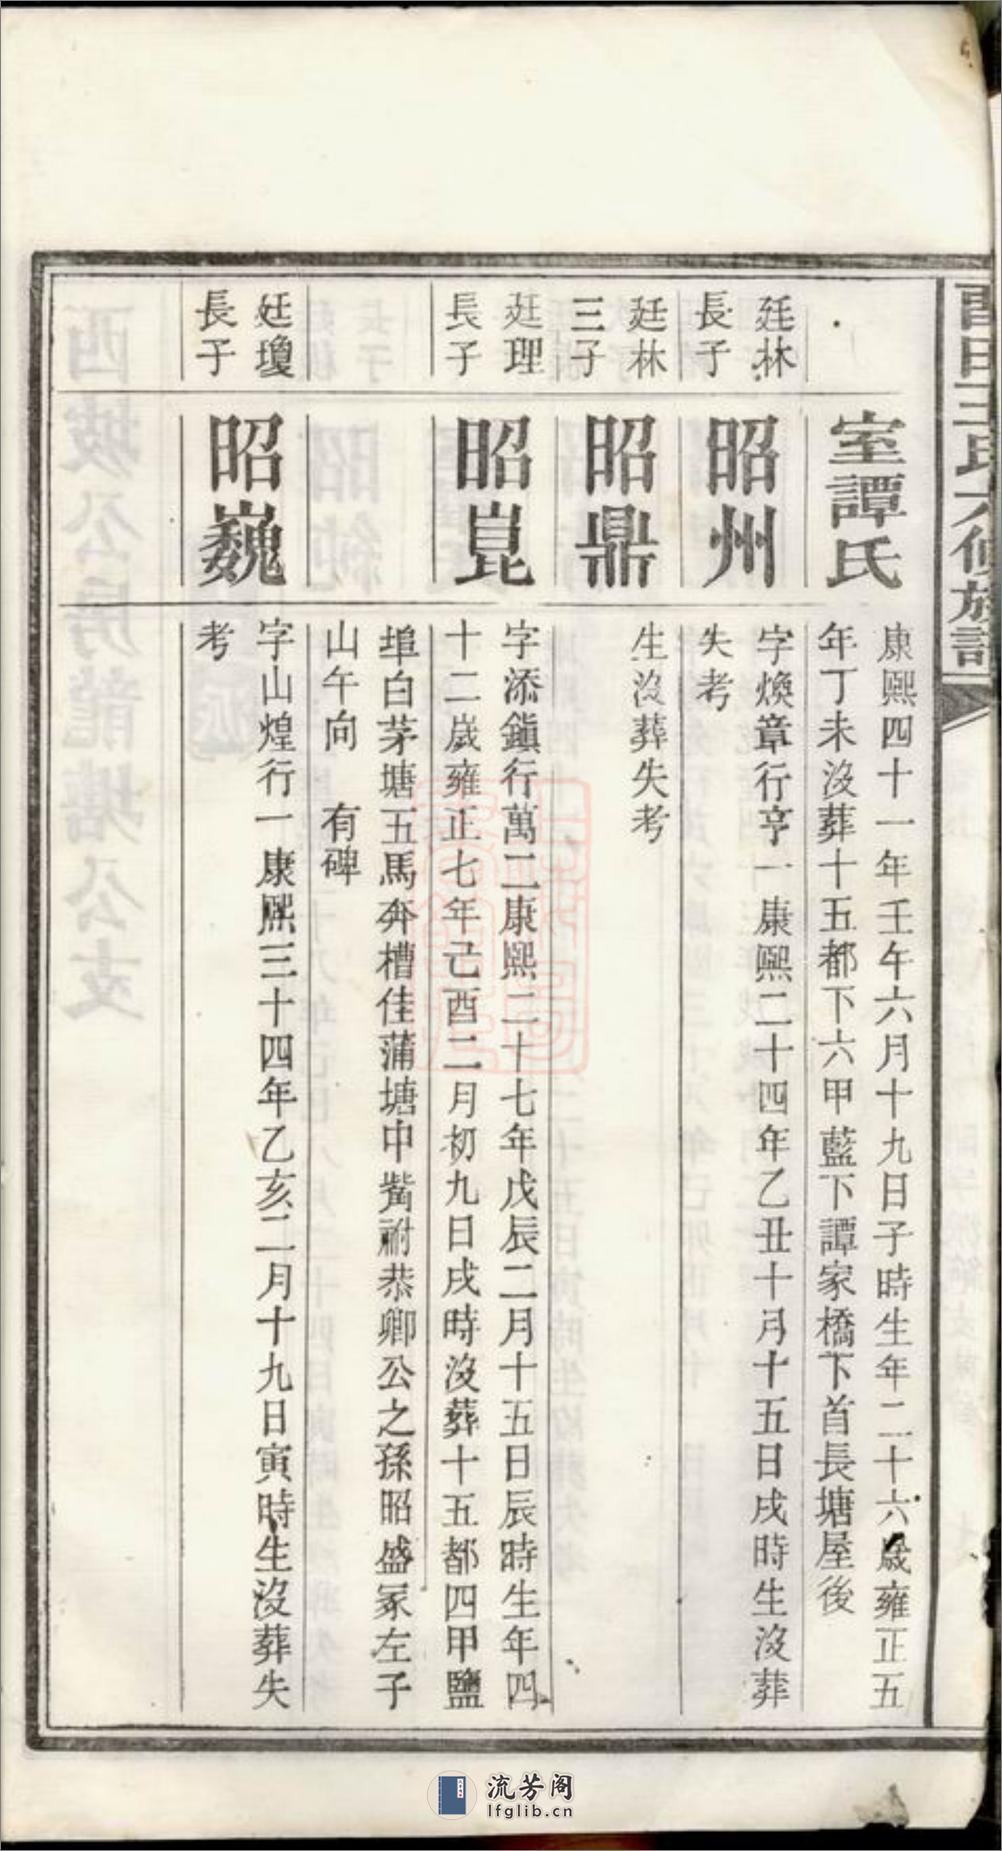 酉田王氏六修族譜
室譚氏
康熙四十一年壬午六月十九日子時生年二十六歲雍正五
年丁未沒葬十五都下六甲藍下譚家橋下首長塘屋後
廷林
長子
昭州
字煥章行亨一康熙二十四年乙丑十月十五日戌時生沒葬
失考
廷林
三子
昭鼎
生沒葬失考
廷理
長子
昭崑
字添鎮行萬二康熙二十七年戊辰二月十五日辰時生年四
十二歲雍正七年己酉二月初九日戌時沒葬十五都四甲鹽
埠白茅塘五馬奔槽佳蒲塘中觜祔恭卿公之孫昭盛冢左子
山午向 有碑
廷瓊
長子
昭巍
字山煌行一康熙三十四年乙亥二月十九日寅時生沒葬失
考
流芳阁
lfglib.cn